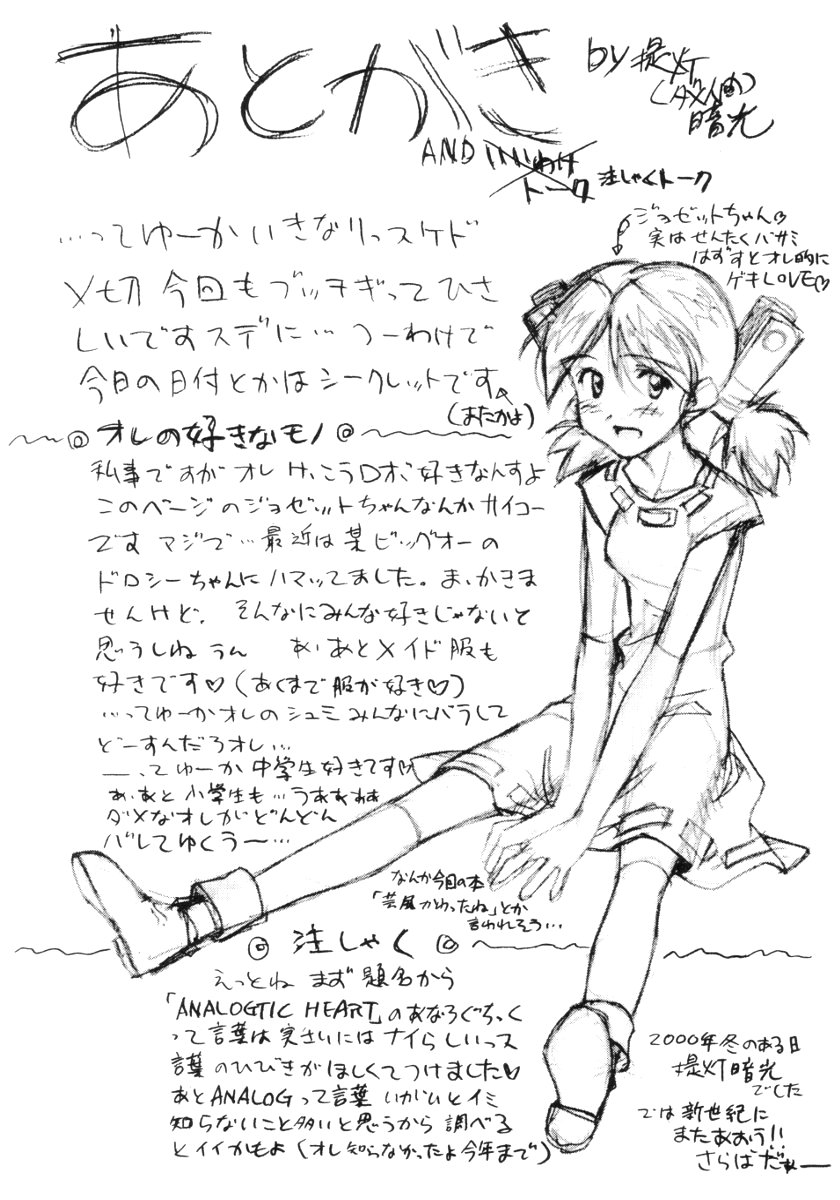 あとがき
by 提灯
(ダメ人間)
暗光
AND いいわけ
トーク 注しゃくトーク
ジョゼットちゃん♡
実はせんたくバサミ
はずすとオレ的に
ゲキLOVE♡
…ってゆーかいきなりっスケド
〆切今回もブッチギってひさ
しいですスデに… つーわけで
今日の日付とかはシークレットです
(またかよ)
◎オレの好きなモノ◎
私事ですがオレけっこうロボ好きなんすよ
このページのジョゼットちゃんなんかサイコー
です マジで…最近は某ビッグオーの
ドロシーちゃんにハマッてました。ま、かきま
せんけど。 そんなにみんな好きじゃないと
思うしね うん あ、あとメイド服も
好きです♡(あくまで服が好き♡)
…ってゆーかオレのシュミみんなにバラして
どーすんだろオレ…
ー、てゆーか中学生好きです♡
あ、あと小学生も…うあぁぁぁ
ダメなオレがどんどん
バレてゆくうー…
なんか今回の本
「芸風かわったね」とか
言われそう…
◎ 注しゃく ◎
えっとね まず 題名から
「ANALOGTIC HEART」のあなろぐちっく
って言葉は実さいにはナイらしいっス
言葉のひびきがほしくてつけました♡
あとANALOGって言葉 いがいとイミ
知らないこと多いと思うから 調べる
とイイかもよ(オレ知らなかったよ今年まで)
2000年冬のある日
提灯暗光
でした
では新世紀に
またあおう!!
さらばだぁー